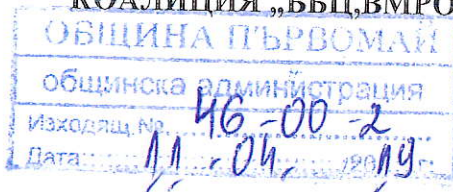 КОАЛИЦИЯ „ББЦ,ВМРО
ОБЩИНА ПЪРВОМАЙ
общинска администрация
Изходящ № 46-00-2
Дата: 11.04. /2019 г.